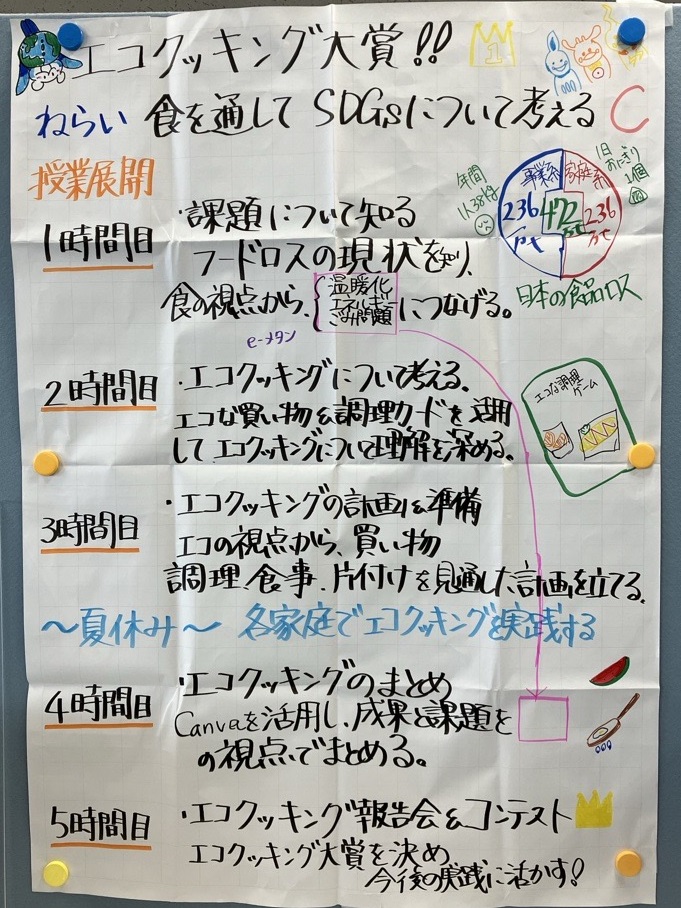 エコクッキング大賞!!
1
ねらい 食を通してSDGsについて考える
C
授業展開
年間
1人38kg
事業系
家庭系
236
万t
472
万t
236
万t
1日
おにぎり
1個
日本の食品ロス
1時間目
・課題について知る
フードロスの現状を知り、
食の視点から、
温暖化
エネルギー
ごみ問題
につなげる。
e-メタン
2時間目
・エコクッキングについて考える。
エコな買い物&調理カードを活用
してエコクッキングについて理解を深める。
エコな調理
ゲーム
3時間目
・エコクッキングの計画&準備
エコの視点から、買い物
調理、食事、片付けを見通した計画を立てる。
〜夏休み〜 各家庭でエコクッキングを実践する
4時間目
・エコクッキングのまとめ
Canvaを活用し、成果と課題を
の視点でまとめる。
5時間目
・エコクッキング報告会&コンテスト
エコクッキング大賞を決め
今後の実践に活かす!